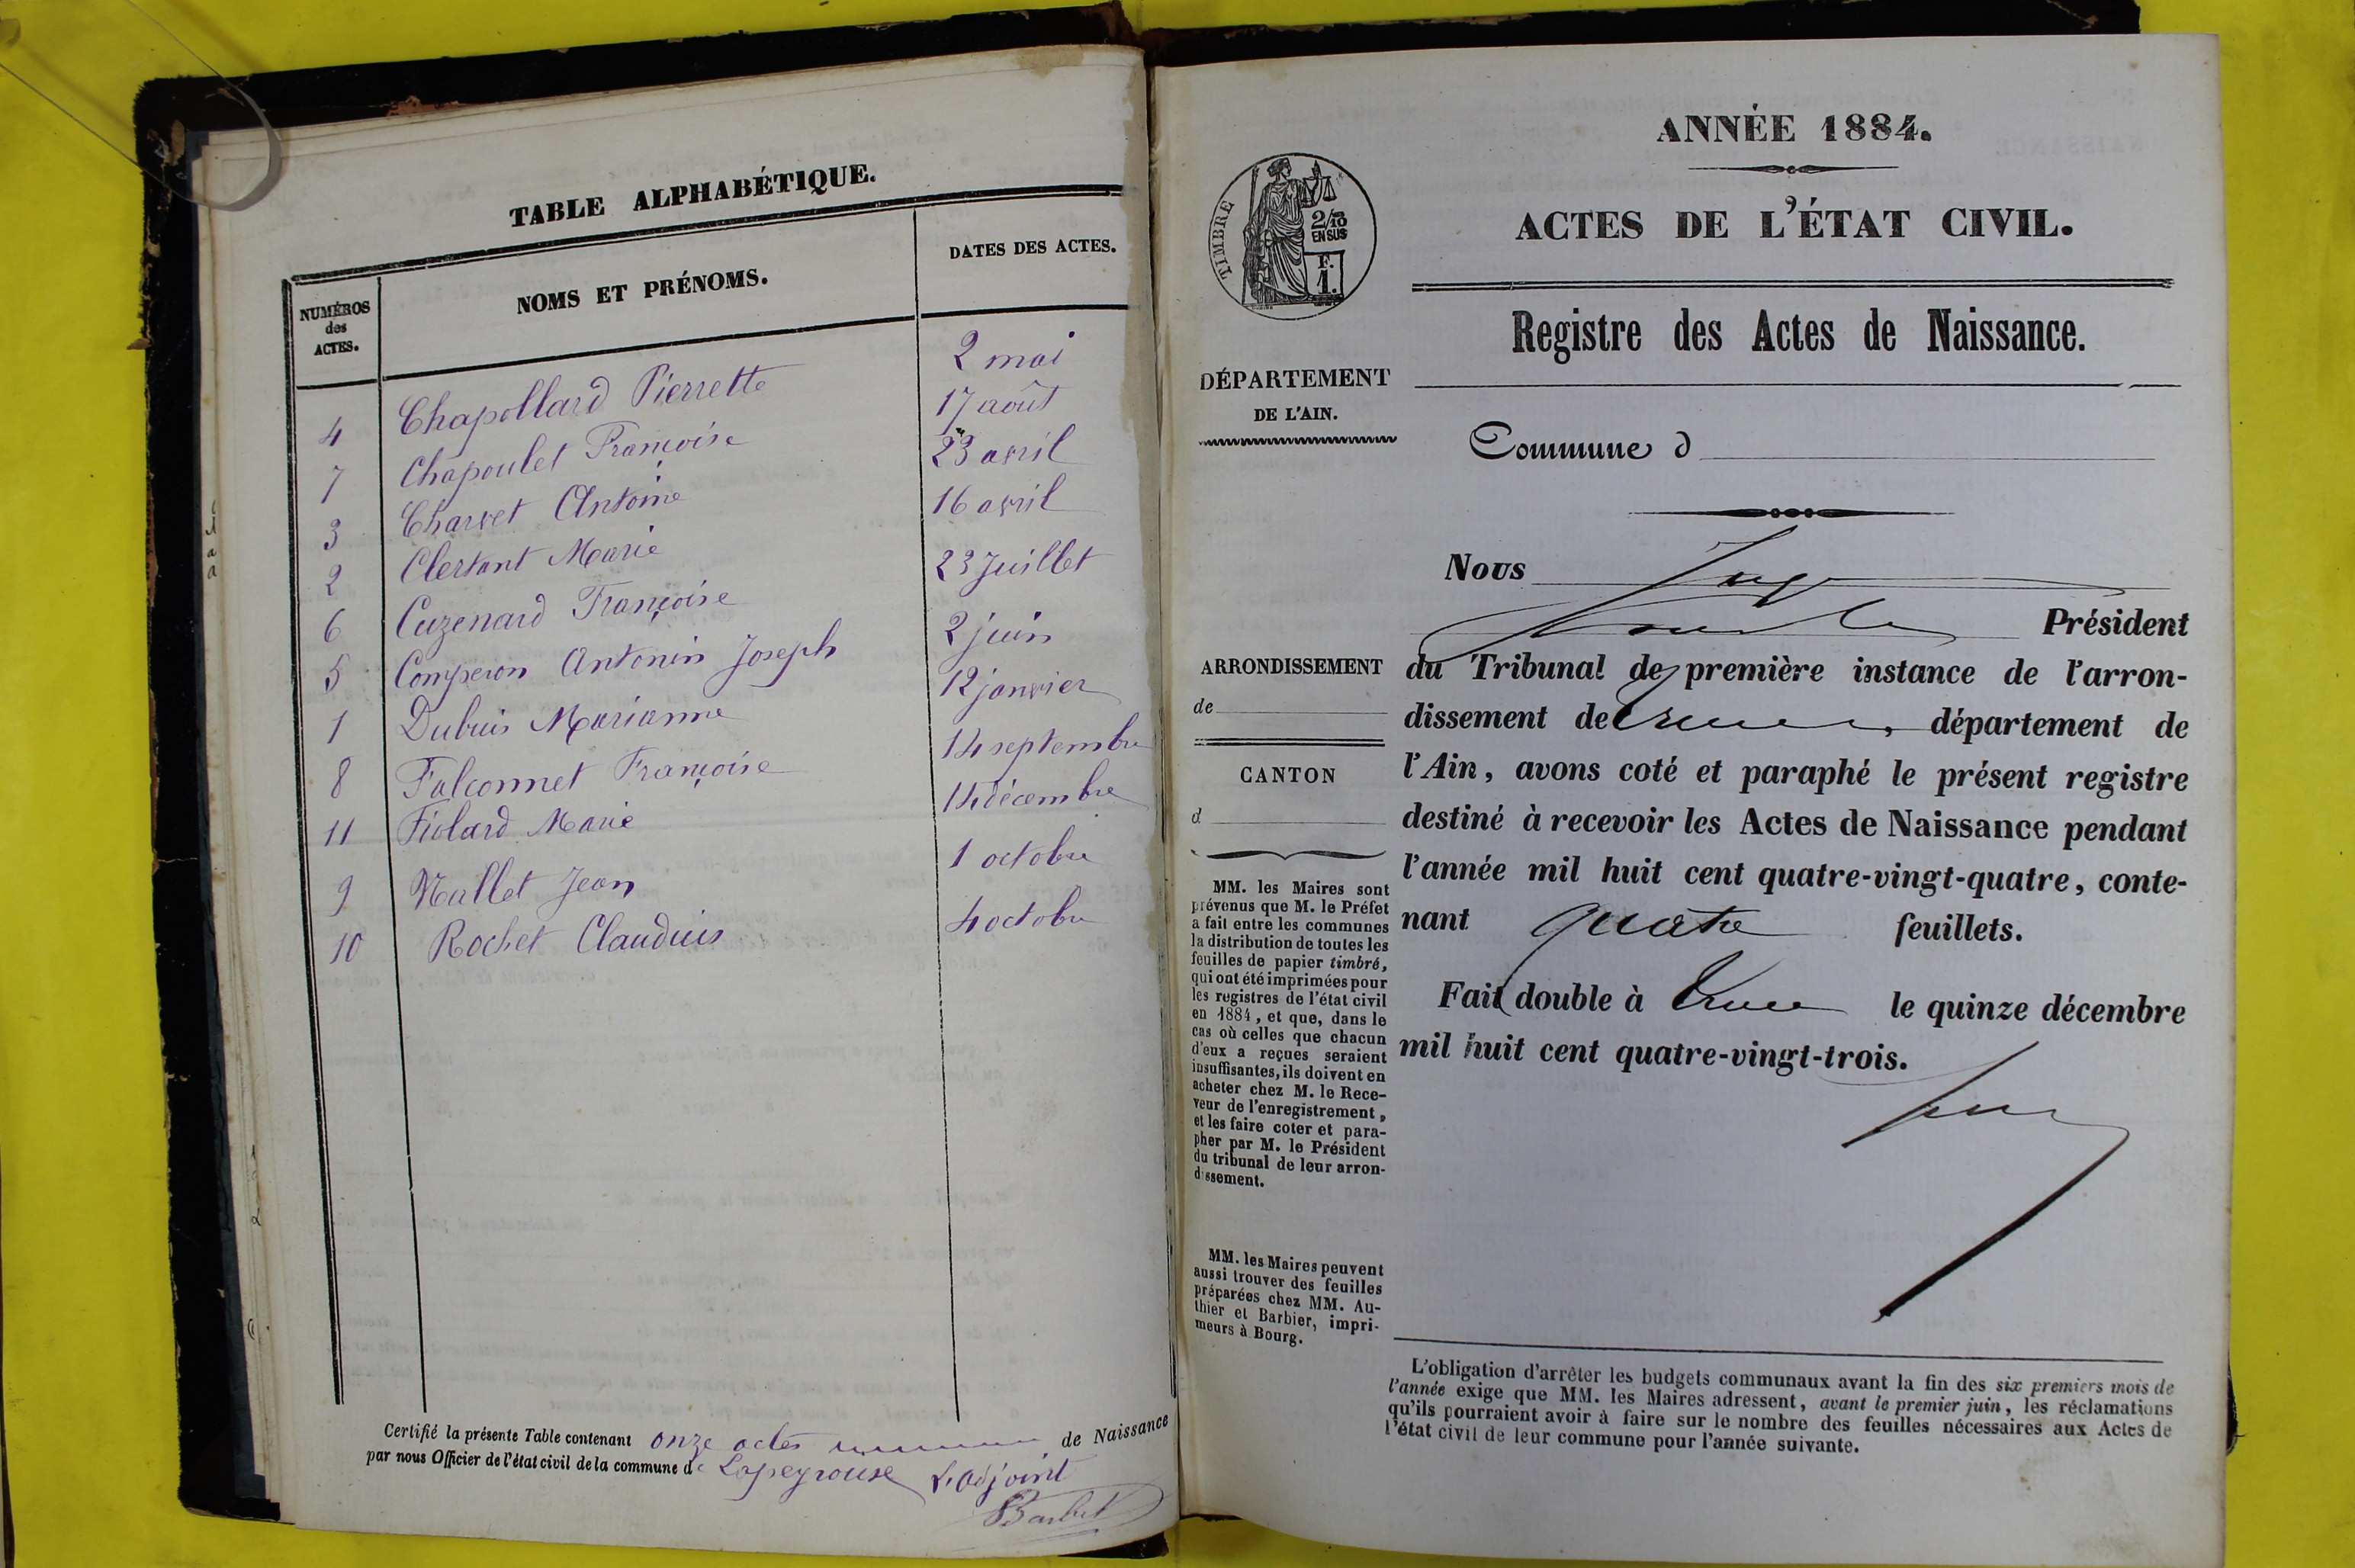 TABLE ALPHABÉTIQUE.
NUMÉROS
des
ACTES.
NOMS ET PRÉNOMS.
DATES DES ACTES.
4 Chapollard Pierrette 2 mai
7 Chapoulet Françoise 17 août
3 Charvet Antoine 23 avril
2 Clertant Marie 16 avril
6 Cuzenard Françoise 23 Juillet
5 Comperon Antonin Joseph 2 juin
1 Dubuis Marianne 12 janvier
8 Falconnet Françoise 14 septembre
11 Fiolard Marie 14 décembre
9 Nallet Jean 1 octobre
10 Rochet Claudius 4 octobre
Certifié la présente Table contenant onze actes de Naissance
par nous Officier de l'état civil de la commune de Lapeyrouse L'adjoint
Barbet
ANNÉE 1884.
TIMBRE
2/10
EN SUS
F.
1.
ACTES DE L'ÉTAT CIVIL.
Registre des Actes de Naissance.
DÉPARTEMENT
DE L'AIN.
Commune d
Nous Juge
Président
ARRONDISSEMENT
de
CANTON
d
du Tribunal de première instance de l'arron-
dissement de Trévoux, département de
l'Ain, avons coté et paraphé le présent registre
destiné à recevoir les Actes de Naissance pendant
l'année mil huit cent quatre-vingt-quatre, conte-
nant quatre feuillets.
Fait double à Trévoux le quinze décembre
mil huit cent quatre-vingt-trois.
MM. les Maires sont
prévenus que M. le Préfet
a fait entre les communes
la distribution de toutes les
feuilles de papier timbré,
qui ont été imprimées pour
les registres de l'état civil
en 1884, et que, dans le
cas où celles que chacun
d'eux a reçues seraient
insuffisantes, ils doivent en
acheter chez M. le Rece-
veur de l'enregistrement,
et les faire coter et para-
pher par M. le Président
du tribunal de leur arron-
dissement.
MM. les Maires peuvent
aussi trouver des feuilles
préparées chez MM. Au-
thier et Barbier, impri-
meurs à Bourg.
L'obligation d'arrêter les budgets communaux avant la fin des six premiers mois de
l'année exige que MM. les Maires adressent, avant le premier juin, les réclamations
qu'ils pourraient avoir à faire sur le nombre des feuilles nécessaires aux Actes de
l'état civil de leur commune pour l'année suivante.